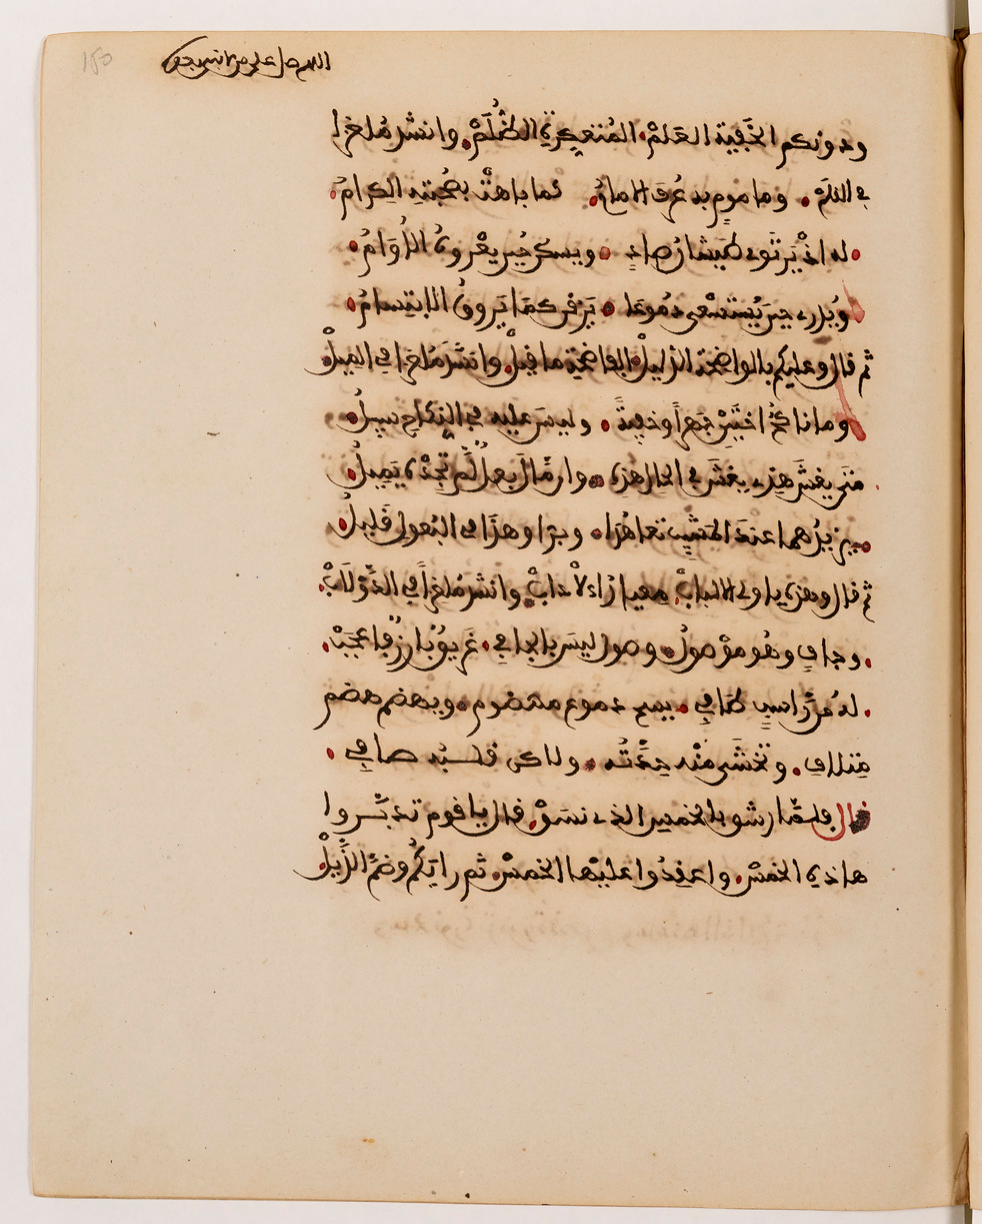 اللهم صل على من لا نبي بعده
ودونكم الخَفِيّة العَلمْ المُعتَكِرة الظُّلَمْ وانشد مُلغزا
في القلَمْ وما موم به عُرف الامامُ كما باهتْ بصُحبته الكرامُ
له اذ يَرتَوي طَيشانُ صادٍ ويسكن حين يعْروهُ الأُوَامُ
ويُذرى حينَ يُستسْعى دمُوعا يَرقن كمَا يَروقُ الابتِسامُ
ثم قال وعليكم بالواضحة الدليلْ الفاضحة ما قيلْ وانشد مُلغزا في الميلْ
وما ناكحٌ اختَينْ جَهراً وخفيةً وليسَ عليه في النِكاح سبيلُ
متى يغش هذى يغشَ في الحال هذه وان مَالَ بعلٌ لم تجدْه يَميلُ
يزيدُهما عندَ المَشيبِ تعاهُدا وبرا وهذا في البُعول قليلُ
ثم قال وهذه يا اولى الالبابْ معيار الاْدابْ وانشد مُلغزاً في الدُّولابْ
وجافٍ وهُو موْصولُ وصول ليسَ بالجافي غريقٌ بارزٌ فاعجَبْ
له مِن راسبٍ طافي يسح دموع مهضوم ويهضم هضم
مِتلافِ وتخشَى منْه حِدَّتُه ولاكن قلـبُه صافي
قال فلـمّا رشق بالخمس الذى نسَقْ قال يا قوم تدبّـروا
هاذه الخمْسْ واعقِدُوا عليْها الخمسْ ثم رايَكُم وضمَّ الذَّيلْ